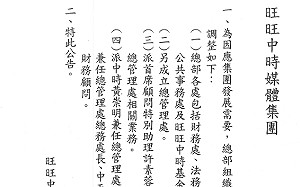 旺旺中時媒體集團
一、為因應集團發展需要，總部組織
調整如下：
(一)總部各處包括財務處、法務
公共事務處及旺旺中時基金
(二)另成立總管理處。
(三)派首席顧問特別助理許素蓉
總管理處相關業務。
(四)派中時黃崇明兼任總管理處
兼任總管理處總務處長、中天
財務顧問。
二、特此公告。
旺旺中